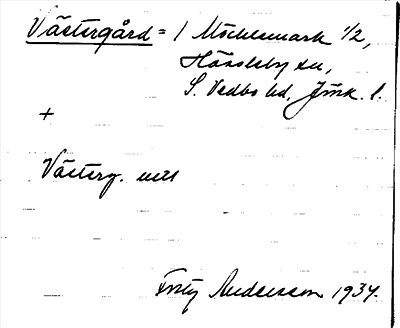 Västergård = 1 Möckelmark 1/2,
Hässleby sn,
S. Vedbo hd, Jönk. l.
+
Västerg. utt
Fritz Andersson 1934.